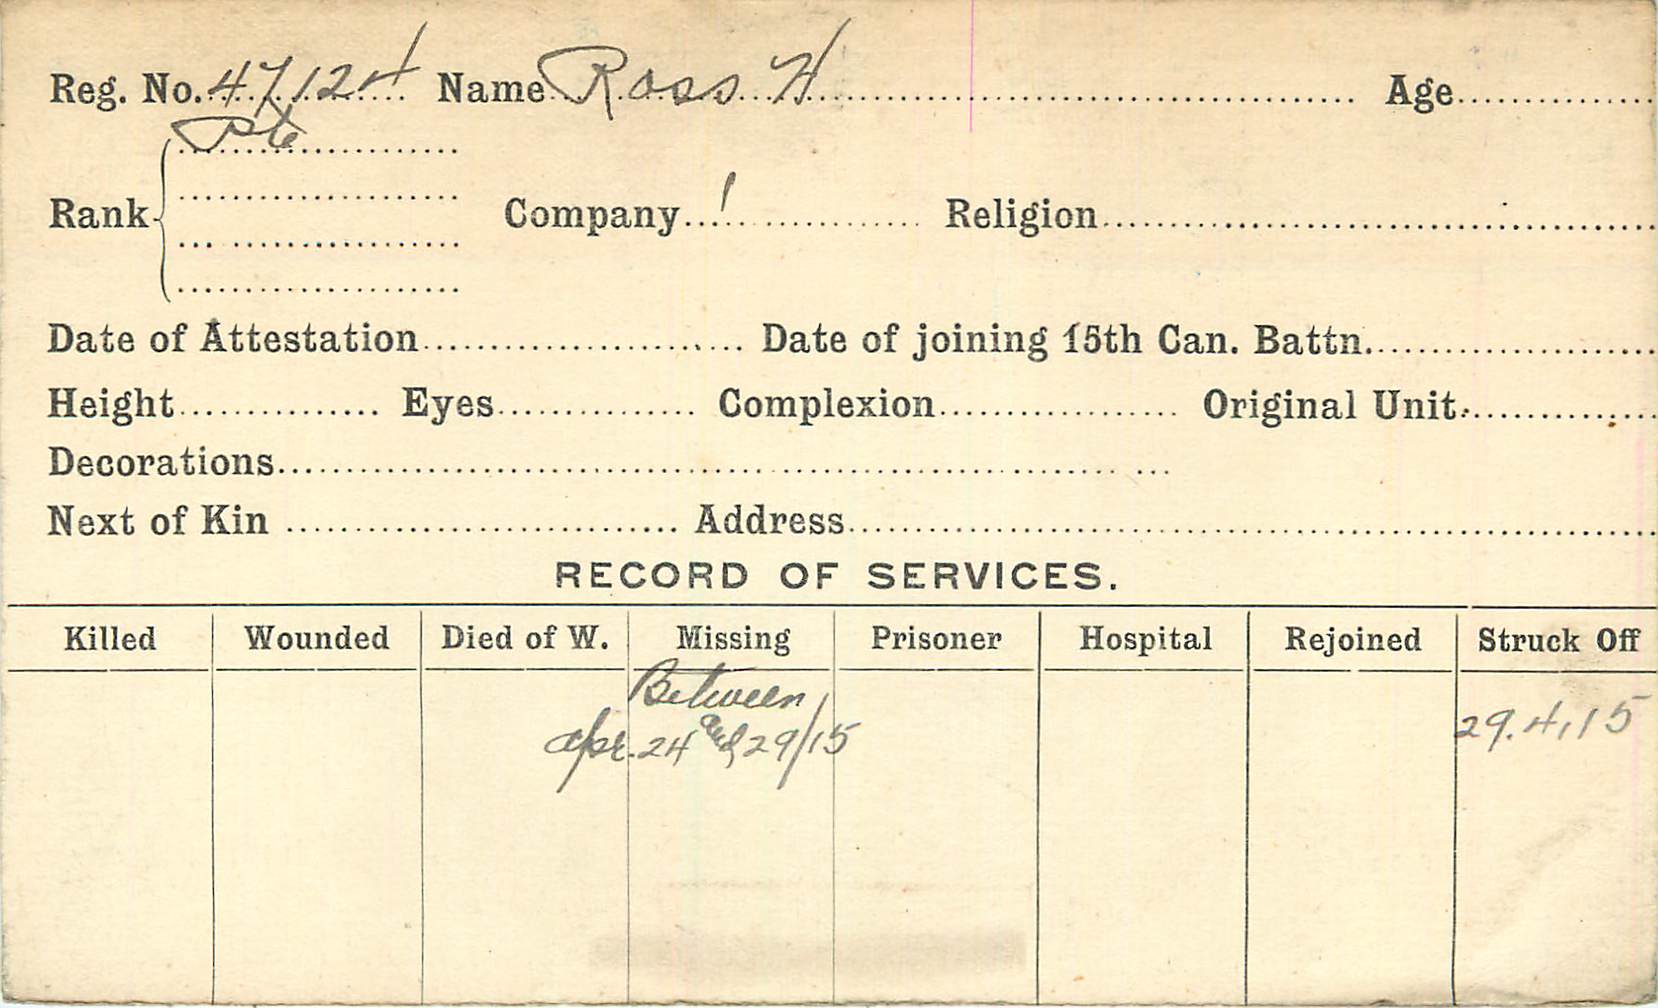 Reg. No. 47124 Name Ross H Age
Pte
Rank Company 1 Religion
Date of Attestation Date of joining 15th Can. Battn.
Height Eyes Complexion Original Unit
Decorations
Next of Kin Address
RECORD OF SERVICES.
Killed Wounded Died of W. Missing Prisoner Hospital Rejoined Struck Off
Between
Apr. 24 and 29/15 29.4.15